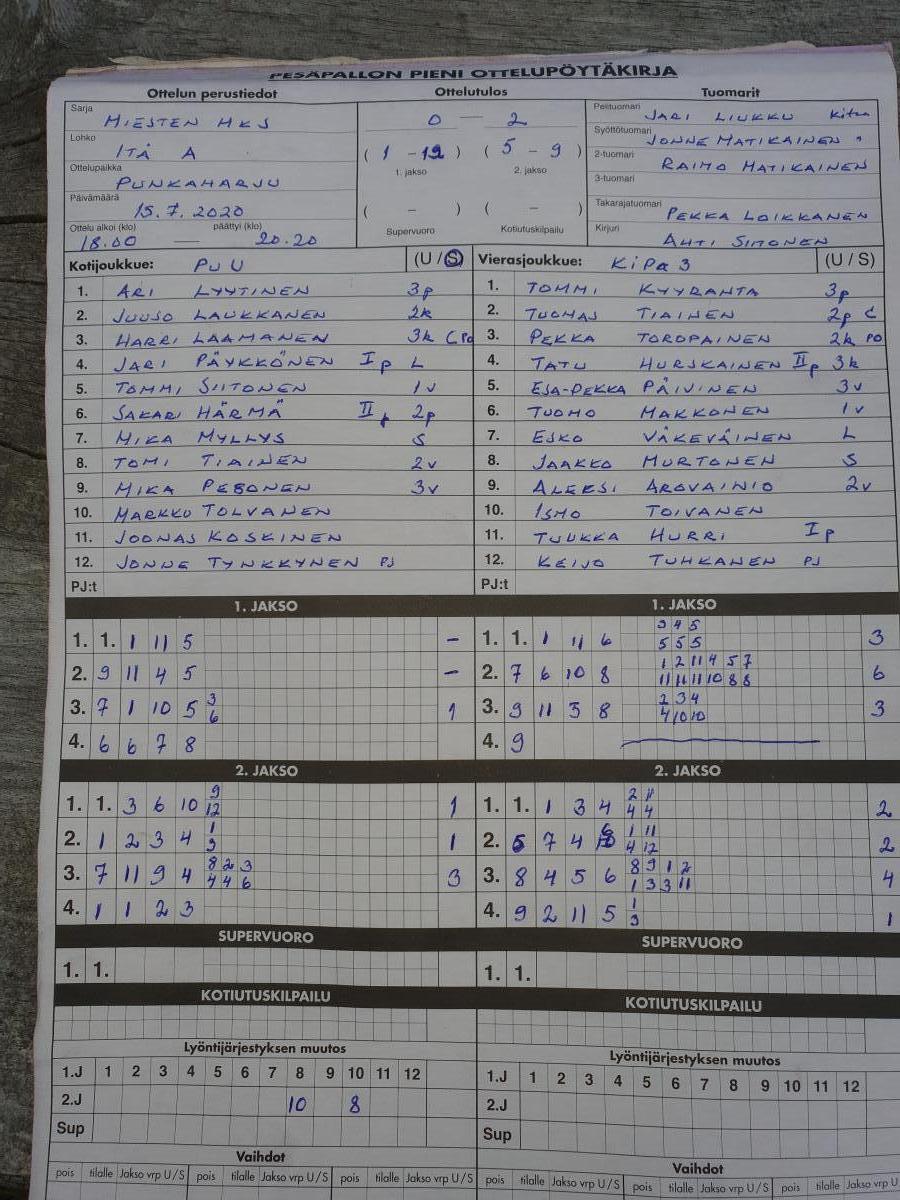 PESÄPALLON PIENI OTTELUPÖYTÄKIRJA
Ottelun perustiedot Ottelutulos Tuomarit
Sarja MIESTEN HKS
Lohko ITÄ A
Ottelupaikka PUNKAHARJU
Päivämäärä 15.7.2020
Ottelu alkoi (klo) päättyi (klo)
18.00 — 20.20
0 — 2
( 1 - 12 ) ( 5 - 9 )
1. jakso 2. jakso
( - ) ( - )
Supervuoro Kotiutuskilpailu
Pelituomari JARI LIUKKU
Syöttötuomari JONNE MATIKAINEN "
2-tuomari RAIMO MATIKAINEN
3-tuomari
Takarajatuomari PEKKA LOIKKANEN
Kirjuri AHTI SIMONEN
Kotijoukkue: PuU (U / S)
1. ARI LYYTINEN 3p
2. JUUSO LAUKKANEN 2k
3. HARRI LAAMANEN 3k C PO
4. JARI PÄYKKÖNEN I p L
5. TOMMI SIITONEN 1v
6. SAKARI HÄRMÄ II p 2p
7. MIKA MYLLYS S
8. TOMI TIAINEN 2v
9. MIKA PESONEN 3v
10. MARKKU TOLVANEN
11. JOONAS KOSKINEN
12. JONNE TYNKKYNEN PJ
PJ:t
Vierasjoukkue: KiPa 3 (U / S)
1. TOMMI KYYRANTA 3p
2. TUOMAS TIAINEN 2p C
3. PEKKA TOROPAINEN 2k PO
4. TATU HURSKAINEN II p 3k
5. ESA-PEKKA PÄIVINEN 3v
6. TUOMO MAKKONEN 1v
7. ESKO VÄKEVÄINEN L
8. JAAKKO MURTONEN S
9. ALEKSI AROVAINIO 2v
10. ISMO TOIVANEN
11. TUUKKA HURRI I p
12. KEIJO TUHKANEN PJ
PJ:t
1. JAKSO
1. 1. 1 11 5 –
2. 9 11 4 5 –
3. 7 1 10 5 3 1
6
4. 6 6 7 8
1. JAKSO
3 4 5
1. 1. 1 11 6 5 5 5 3
1 2 11 4 5 7
2. 7 6 10 8 11 11 11 10 8 8 6
2 3 4
3. 9 11 3 8 4 10 10 3
4. 9
2. JAKSO
9
1. 1. 3 6 10 12 1
1
2. 1 2 3 4 3 1
8 2 3
3. 7 11 9 4 4 4 6 3
4. 1 1 2 3
2. JAKSO
2 11
1. 1. 1 3 4 4 4 2
6 1 11
2. 5 7 4 4 12 2
8 9 1 2
3. 8 4 5 6 1 3 3 11 4
1
4. 9 2 11 5 3 1
SUPERVUORO
1. 1.
SUPERVUORO
1. 1.
KOTIUTUSKILPAILU
KOTIUTUSKILPAILU
Lyöntijärjestyksen muutos
1.J 1 2 3 4 5 6 7 8 9 10 11 12
2.J 10 8
Sup
Lyöntijärjestyksen muutos
1.J 1 2 3 4 5 6 7 8 9 10 11 12
2.J
Sup
Vaihdot
pois tilalle Jakso vrp U/S pois tilalle Jakso vrp U/S
Vaihdot
pois tilalle Jakso vrp U/S pois tilalle Jakso vrp U